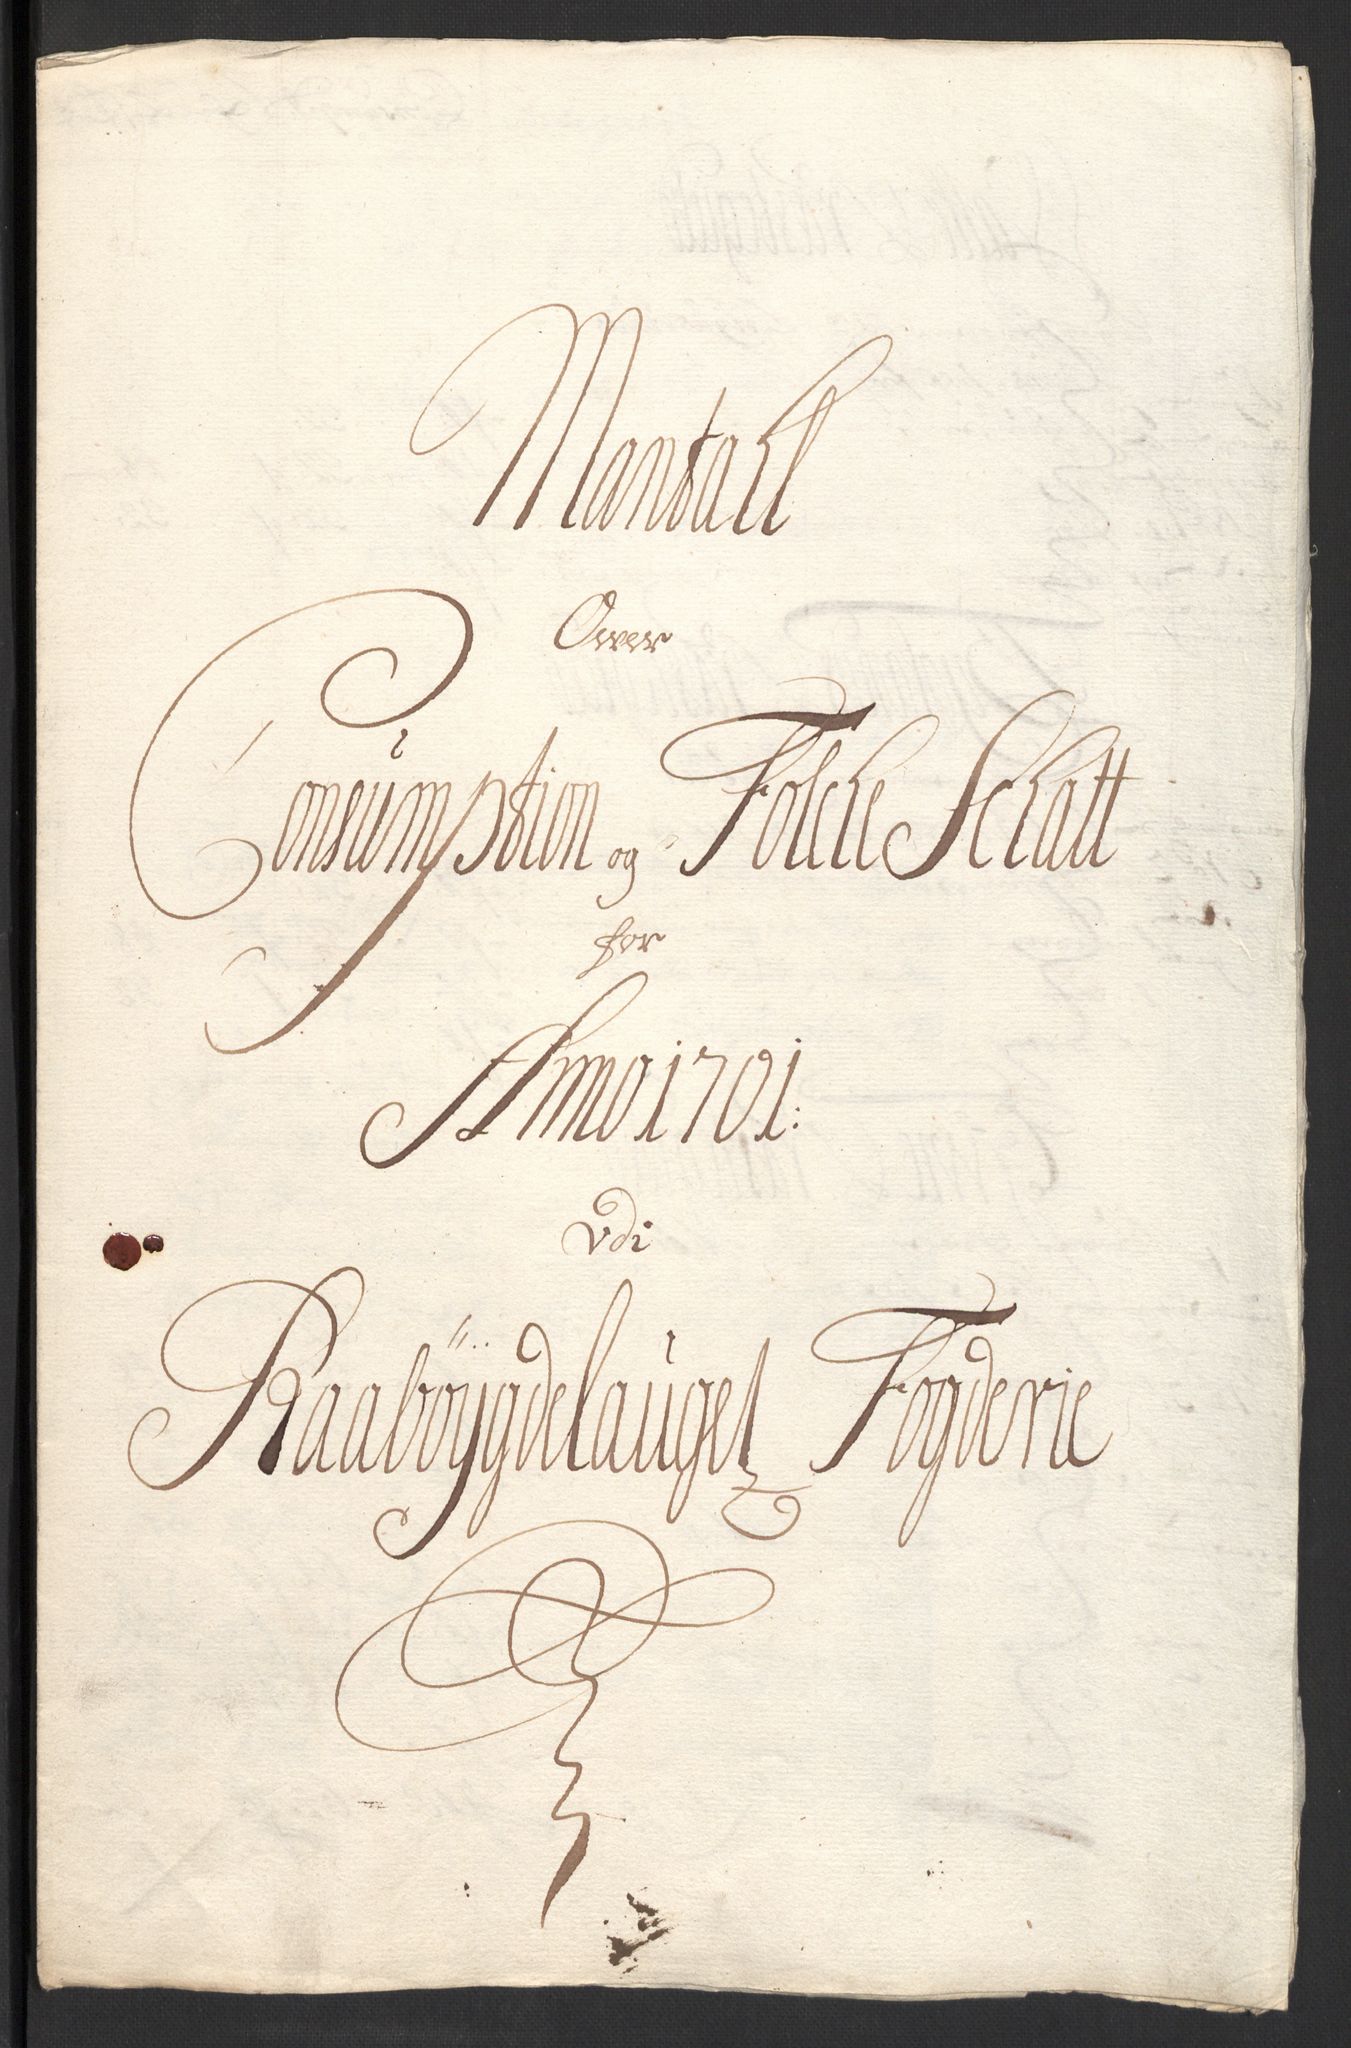 Mantall
Over
Consumption og Folche Schatt
for
Anno 1701:
vdi
Raaböÿgdelauget Fogderie